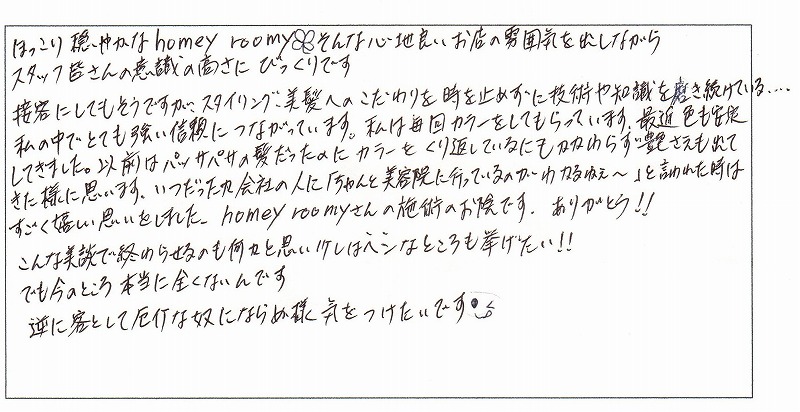 ほっこり 穏やかな homey roomy そんな心地良いお店の雰囲気を出しながら
スタッフ皆さんの意識の高さに びっくりです
接客にしてもそうですが、スタイリング、美髪へのこだわりを 時を止めずに技術や知識を磨き続けている...
私の中でとても強い信頼につながっています。私は毎回カラーをしてもらっています。最近 色も安定
してきました。以前はパッサパサの髪だったのにカラーをくり返しているにもかかわらず艶さえも出て
きた様に思います。いつだったか会社の人に「ちゃんと美容院に行っているのがわかるねぇ〜」と言われた時は
すごく嬉しい思いをしました。homey roomyさんの施術のお陰です。ありがとう!!
こんな美談で終わらせるのも何かと思い少しはヘンなところも挙げたい!!
でも今のところ 本当に全くないんです
逆に客として厄介な奴にならぬ様 気をつけたいです